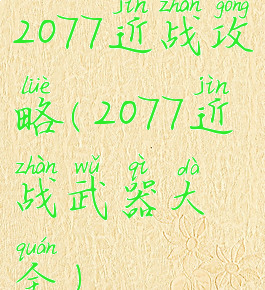 jìn zhàn gōng
2077近战攻
lüè jìn
略(2077近
zhàn wǔ qì dà
战武器大
quán
全)